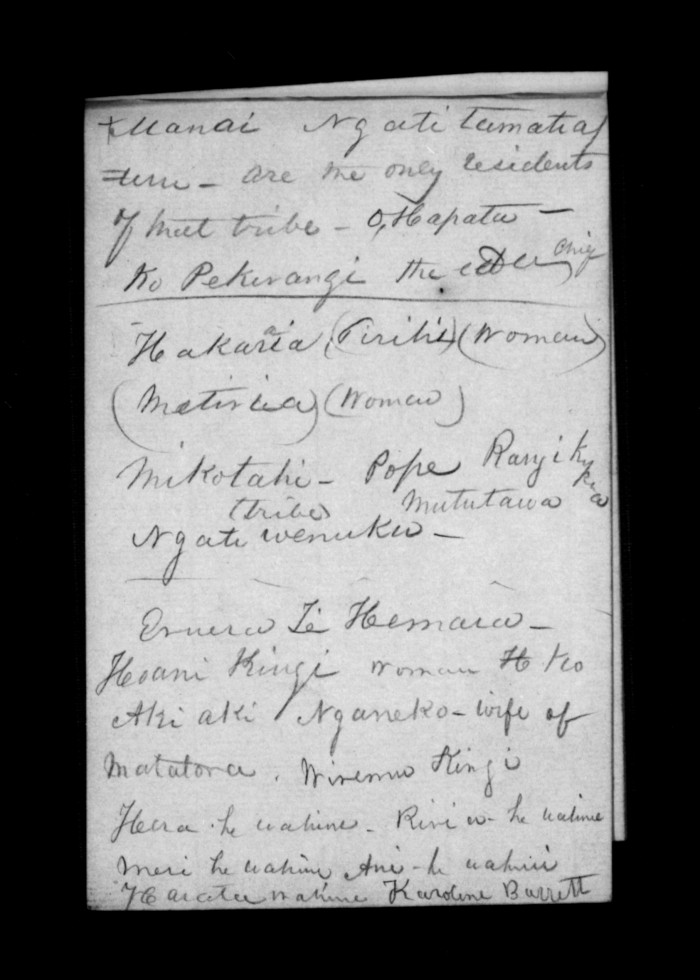 Manai Ngati tamatea
- are the only residents
of that tribe - O, Hapata -
Ko Pekerangi the elder Chief
Hakaraia (Pirihi) (Woman)
(Woman)
Mikotahi - Pope Rangi
(tribe) Mututawa
Ngati wenuku -
Eruera Te Hemara -
Hoani Kingi woman H Ko
Aki aki Nganeko - wife of
Matatora. Wiremu Kingi
Hera - he wahine - Riria - he wahine
Meri he wahine Ani - he wahine
Harata wahine Karoline Barrett